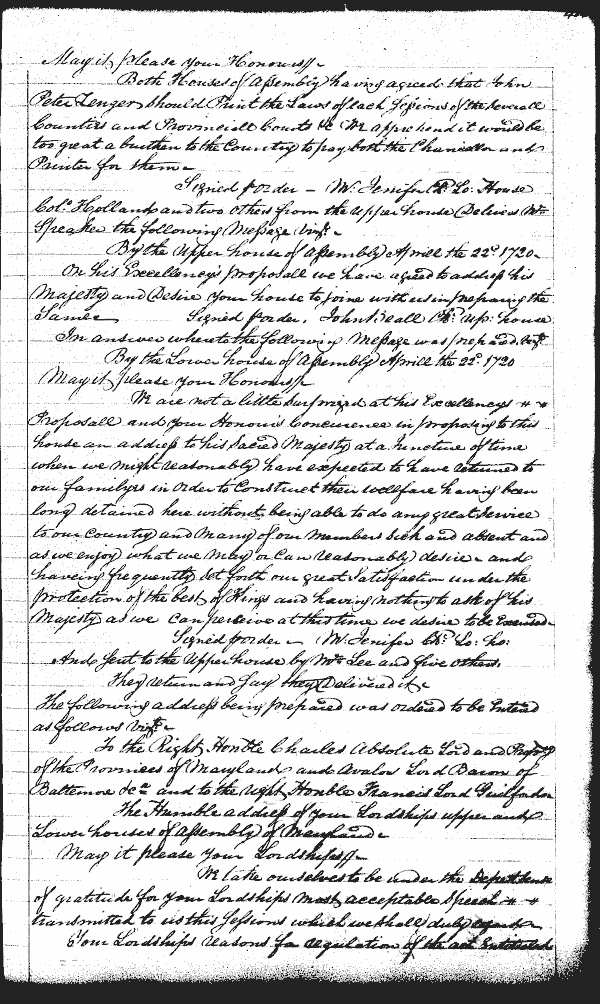 May it please your Honours//
Both Houses of Assembly having agreed that John
Peter Zenger should Print the Laws of each Sessions of the severall
Counties and Provinciall Courts &c We apprehend it would be
too great a burthen to the Country to pay both the Chancellor and
Printer for them
Signed p order - M. Jenifer Cl. Lo: House
Col.o Holland and two others from the upper house Delivers Mr
Speaker the following Message viz.t
By the Upper house of Assembly Aprill the 22d 1720
On his Excellencys proposall we have agreed to address his
Majesty and Desire your house to joine with us in preparing the
Same Signed p order. John Beall Cl: up: house
In answer whereto the following Message was prepared viz.t
By the Lower house of Assembly Aprill the 22d 1720
May it please your Honours//
We are not a little Surprized at his Excellencys
Proposall and your Honours Concurence in proposing to this
house an address to his Sacred Majesty at a Juncture of time
when we might reasonably have expected to have returned to
our familyes in order to Construct their wellfare having been
long detained here without being able to do any great Service
to our Country and Many of our members Sick and absent and
as we enjoy what we May or Can reasonably desire and
haveing frequently Set forth our great Satisfaction under the
protection of the best of Kings and having nothing to ask of his
Majesty as we can perceive at this time we desire to be Excused
Signed p order M. Jenifer Cl. Lo: ho:
And Sent to the Upper house by Mr Lee and five others.
They return and Say they Delivered it
The following address being prepared was ordered to be Entred
as follows viz.t
To the Right Honble Charles Absolute Lord and Propry
of the Provinces of Maryland and Avalon Lord Baron of
Baltemore &ca and to the right Honble Francis Lord Guilford
The Humble address of your Lordships upper and
Lower houses of Assembly of Maryland
May it please your Lordships//
We take ourselves to be under the
of gratitude for your Lordships most acceptable Speech
transmitted to us this Sessions which we shall duly regard
Your Lordships reasons for regulation of the act Entituled